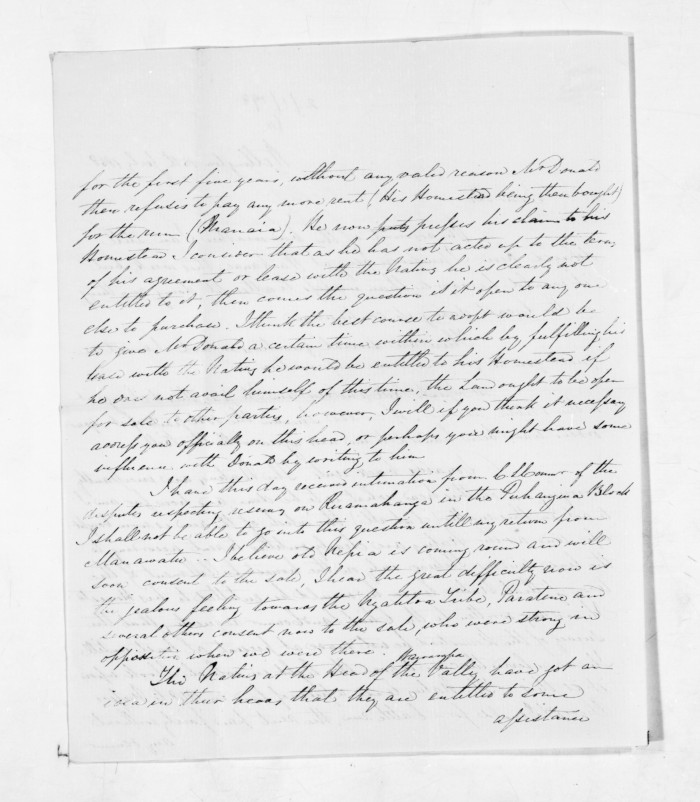 for the first five years, without any valid reason McDonald
then refuses to pay any more rent (His Homestead being then bought)
for the run (Wharaia). He now puts presses his claim to his
Homestead I consider that as he has not acted up to the
of his agreement or lease with the Natives he is clearly not
entitled to it, then comes the question is it open to any one
else to purchase. I think the best course to adopt would be
to give McDonald a certain time within which by fulfilling his
lease with the Natives he would be entitled to his Homestead if
he does not avail himself of this time, the Land ought to be open
for sale to other parties, however, I will if you think it necessary
address you officially on this head, or perhaps you might have some
influence with Donald by writing to him
I have this day received intimation from of the
disputes respecting on Ruamahanga in the Block
I shall not be able to go into this question untill my return from
Manawatu .. I believe old Nepia is coming round and will
soon consent to the sale, I hear the great difficulty now is
the jealous feeling towards the Ngatitoa Tribe, Paratene and
several others consent now to the sale, who were strong in
opposition when we were there.
Wairarapa
The Natives at the Head of the Valley have got an
idea in their heads that they are entitled to some
assistance